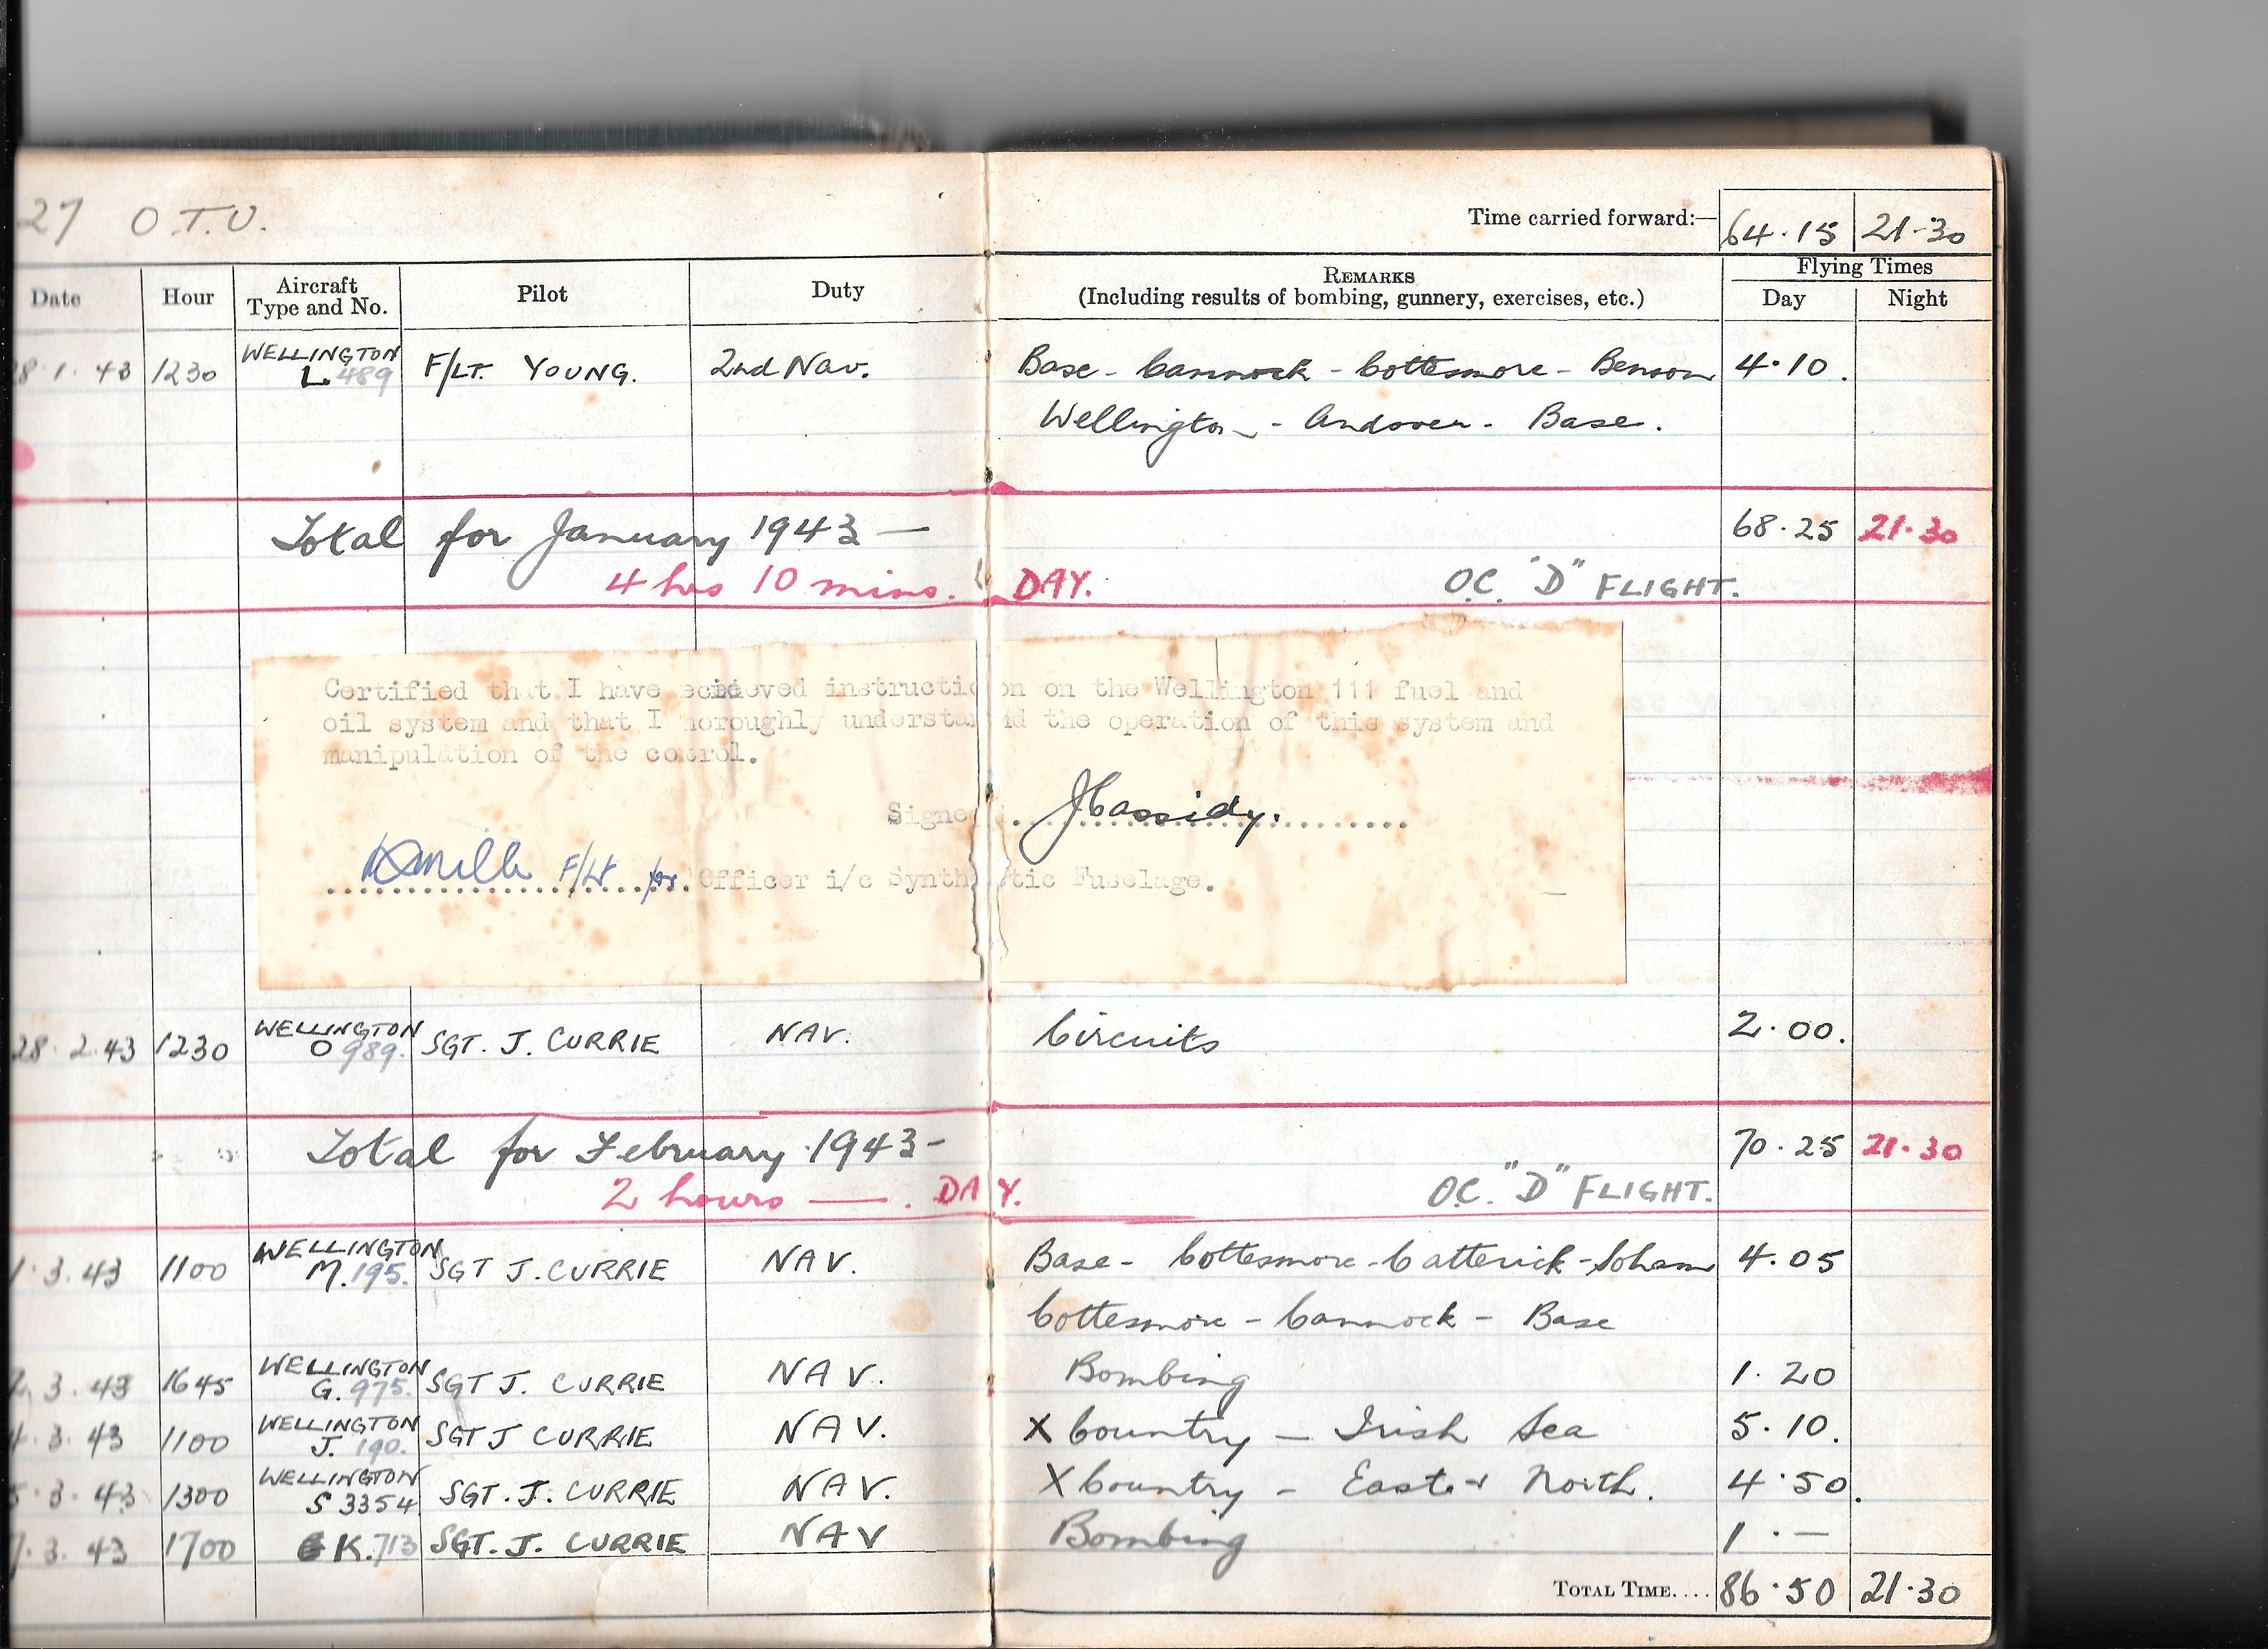 27 O.T.U.
Time carried forward:— 64.15 21.30
Date Hour Aircraft Type and No. Pilot Duty REMARKS (Including results of bombing, gunnery, exercises, etc.) Flying Times Day Night
28.1.43 1230 WELLINGTON L.489 F/LT. YOUNG. 2nd Nav. Base - Cannock - Cottesmore - Benson 4.10.
Wellington - Andover - Base.
Total for January 1943 — 68.25 21.30
4 hrs 10 mins. DAY. O.C. "D" FLIGHT.
Certified that I have instruction on the Wellington 111 fuel and
oil system and that I horoughly understand the operation of this system and
manipulation of the cotrol.
Signe J Cassidy.
F/Lt for Officer i/c Synthetic Fuselage.
28.2.43 1230 WELLINGTON O 989. SGT. J. CURRIE NAV. Circuits 2.00.
Total for February 1943 - 70.25 21.30
2 hours — . DAY. O.C. "D" FLIGHT.
1.3.43 1100 WELLINGTON M.195. SGT J. CURRIE NAV. Base - Cottesmore - Catterick - Soham 4.05
Cottesmore - Cannock - Base
2.3.43 1645 WELLINGTON G.975. SGT J. CURRIE NAV. Bombing 1.20
4.3.43 1100 WELLINGTON J.190. SGT J CURRIE NAV. X Country — Irish Sea 5.10.
5.3.43 1300 WELLINGTON S 3354 SGT. J. CURRIE NAV. X Country - East + North. 4.50.
7.3.43 1700 K.713 SGT. J. CURRIE NAV Bombing 1.—
TOTAL TIME.... 86.50 21.30